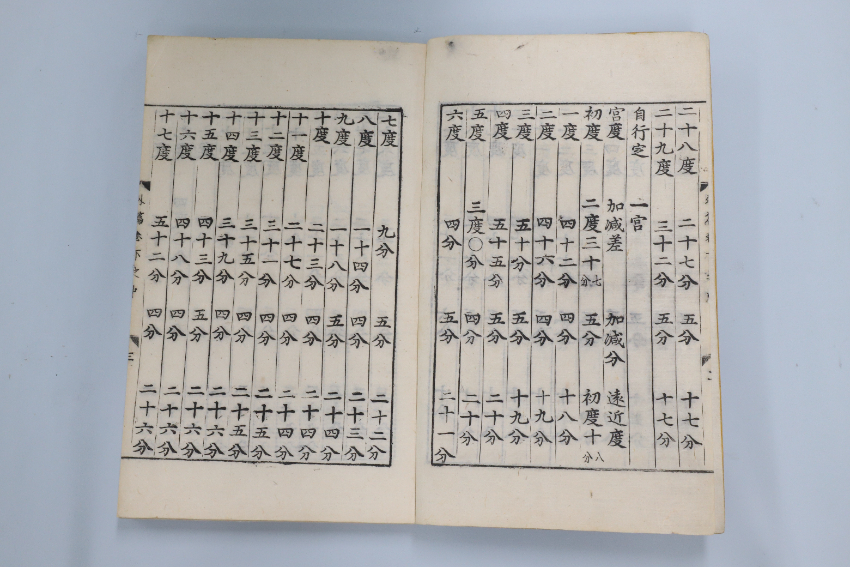 二十八度 二十七分 五分 十七分
二十九度 三十二分 五分 十七分
自行定 一宮
宮度 加減差 加減分 遠近度
初度 二度三十七分 五分 初度十八分
一度 四十二分 四分 十八分
二度 四十六分 四分 十九分
三度 五十分 五分 十九分
四度 五十五分 五分 二十分
五度 三度〇分 四分 二十分
六度 四分 五分 二十一分
七度 九分 五分 二十二分
八度 一十四分 四分 二十三分
九度 一十八分 五分 二十四分
十度 二十三分 四分 二十四分
十一度 二十七分 四分 二十四分
十二度 三十一分 四分 二十五分
十三度 三十五分 四分 二十五分
十四度 三十九分 四分 二十六分
十五度 四十三分 五分 二十六分
十六度 四十八分 四分 二十六分
十七度 五十二分 四分 二十六分
外篇卷下之中
三